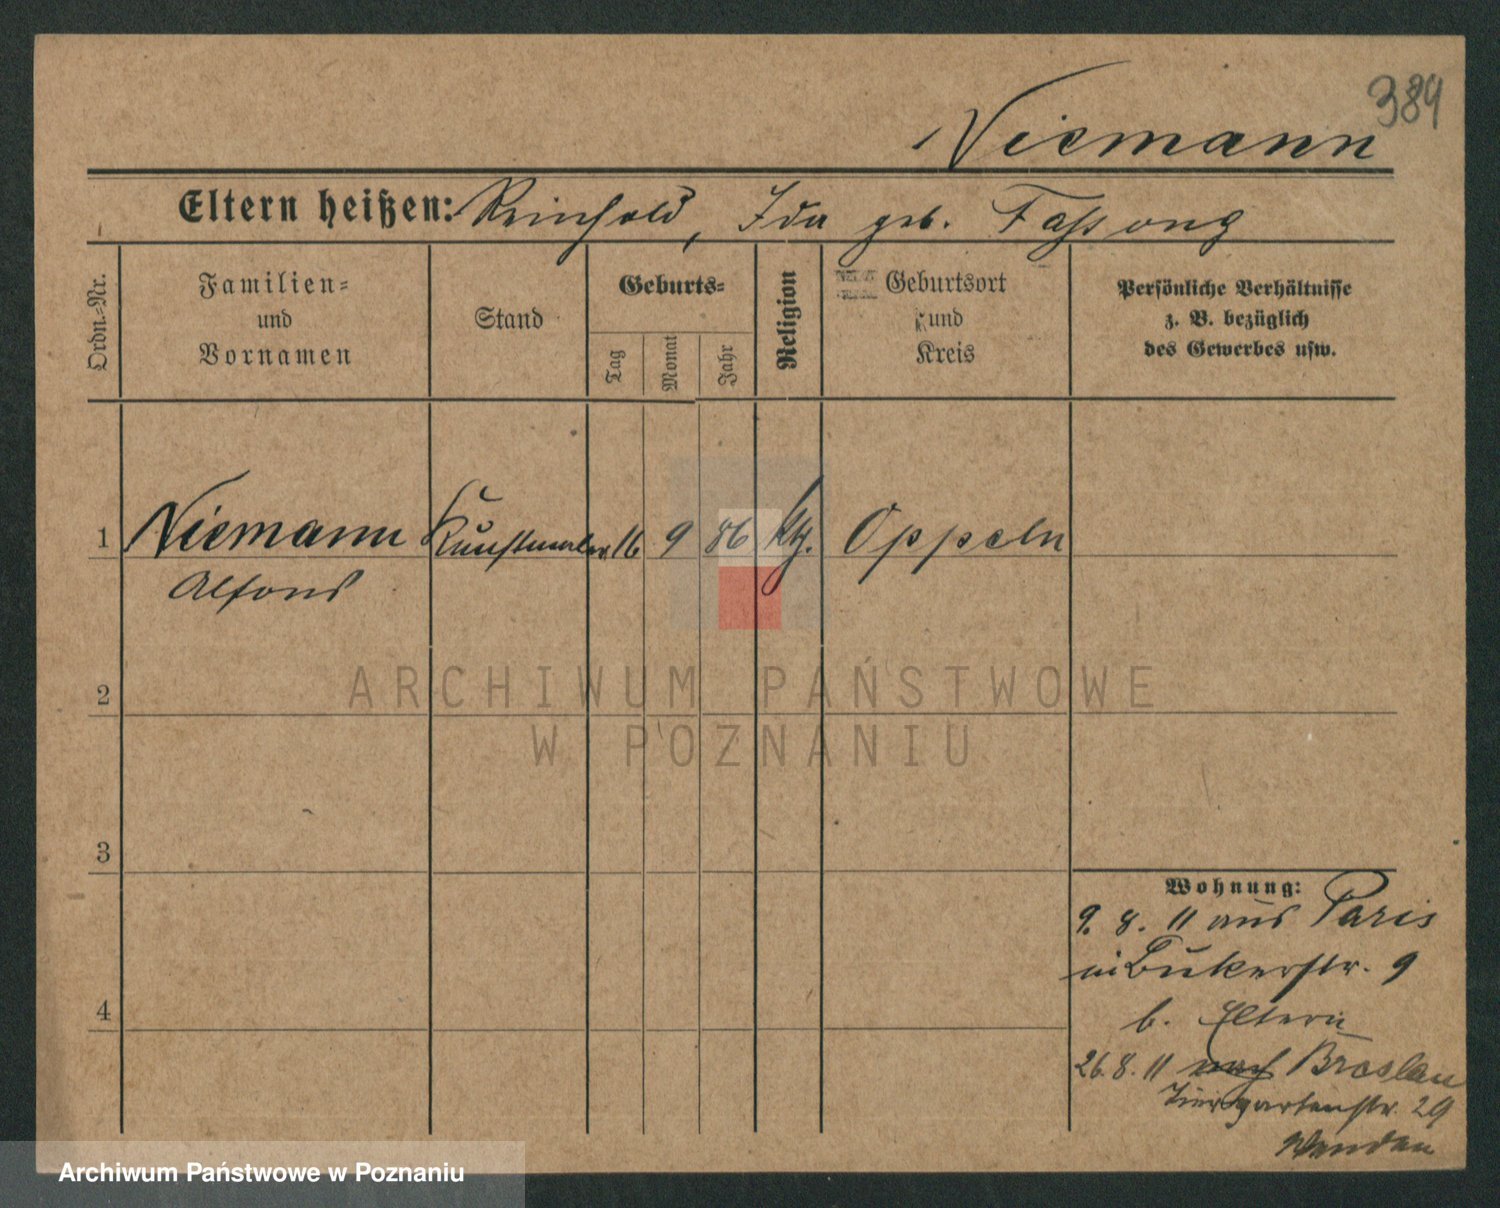 384
Niemann
Eltern heißen: Reinhold, Ida geb. Fassong
Ordn.-Nr.
Familien-
und
Vornamen
Stand
Geburts-
Tag
Monat
Jahr
Religion
Geburtsort
und
Kreis
Persönliche Verhältnisse
z. B. bezüglich
des Gewerbes usw.
1 Niemann Kunstmaler 16 9 86 kth. Oppeln
Alfons
2
3
4
Wohnung:
9. 8. 11 aus Paris
in Bukerstr. 9
b. Eltern
26. 8. 11 nach Breslau
Tiergartenstr. 29
ARCHIWUM PAŃSTWOWE
W POZNANIU
Archiwum Państwowe w Poznaniu